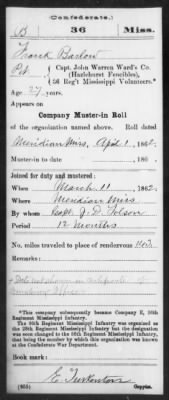 (Confederate.)
B 36 Miss.
Frank Barlow
Pvt., Capt. John Warren Ward's Co.
(Hazlehurst Fencibles),
36 Reg't Mississippi Volunteers.*
Age 27 years.
Appears on
Company Muster-in Roll
of the organization named above. Roll dated
Meridian Miss, April 1, 1862.
Muster-in to date , 186 .
Joined for duty and mustered:
When March 11, 1862.
Where Meridian Miss
By whom Capt. J. D.
Period 12 months
No. miles traveled to place of rendezvous
Remarks:
Date not shown in certificate of
mustering officer
*This company subsequently became Company E, 36th
Regiment Mississippi Infantry.
The 36th Regiment Mississippi Infantry was organized as
the Regiment Mississippi Infantry but the designation
was soon changed to the 36th Regiment Mississippi Infantry,
that being the number by which this organization was known
at the Confederate War Department.
Book mark:
E.
Copyist.